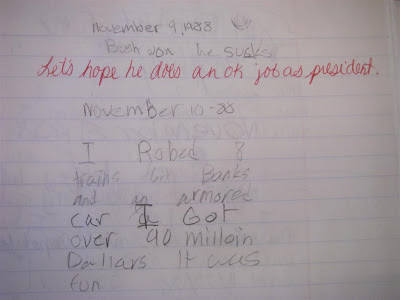 November 9, 1988
Bush won he sucks
Let's hope he does an ok job as president.
November 10-88
I Robed 8
trains six Banks
and an armored
car I Got
over 90 milloin
Dollars It was
fun